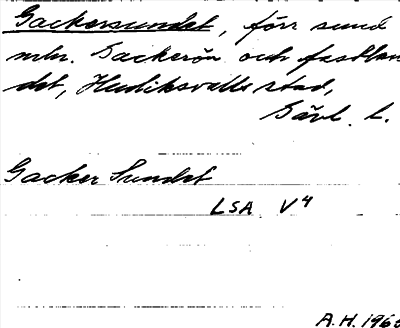 Gackersundet, förr sund
mln. Gackerön och fastlan
det, Hudiksvalls stad,
Gävl. l.
Gacker Sundet
LSA V4
A.H. 1960